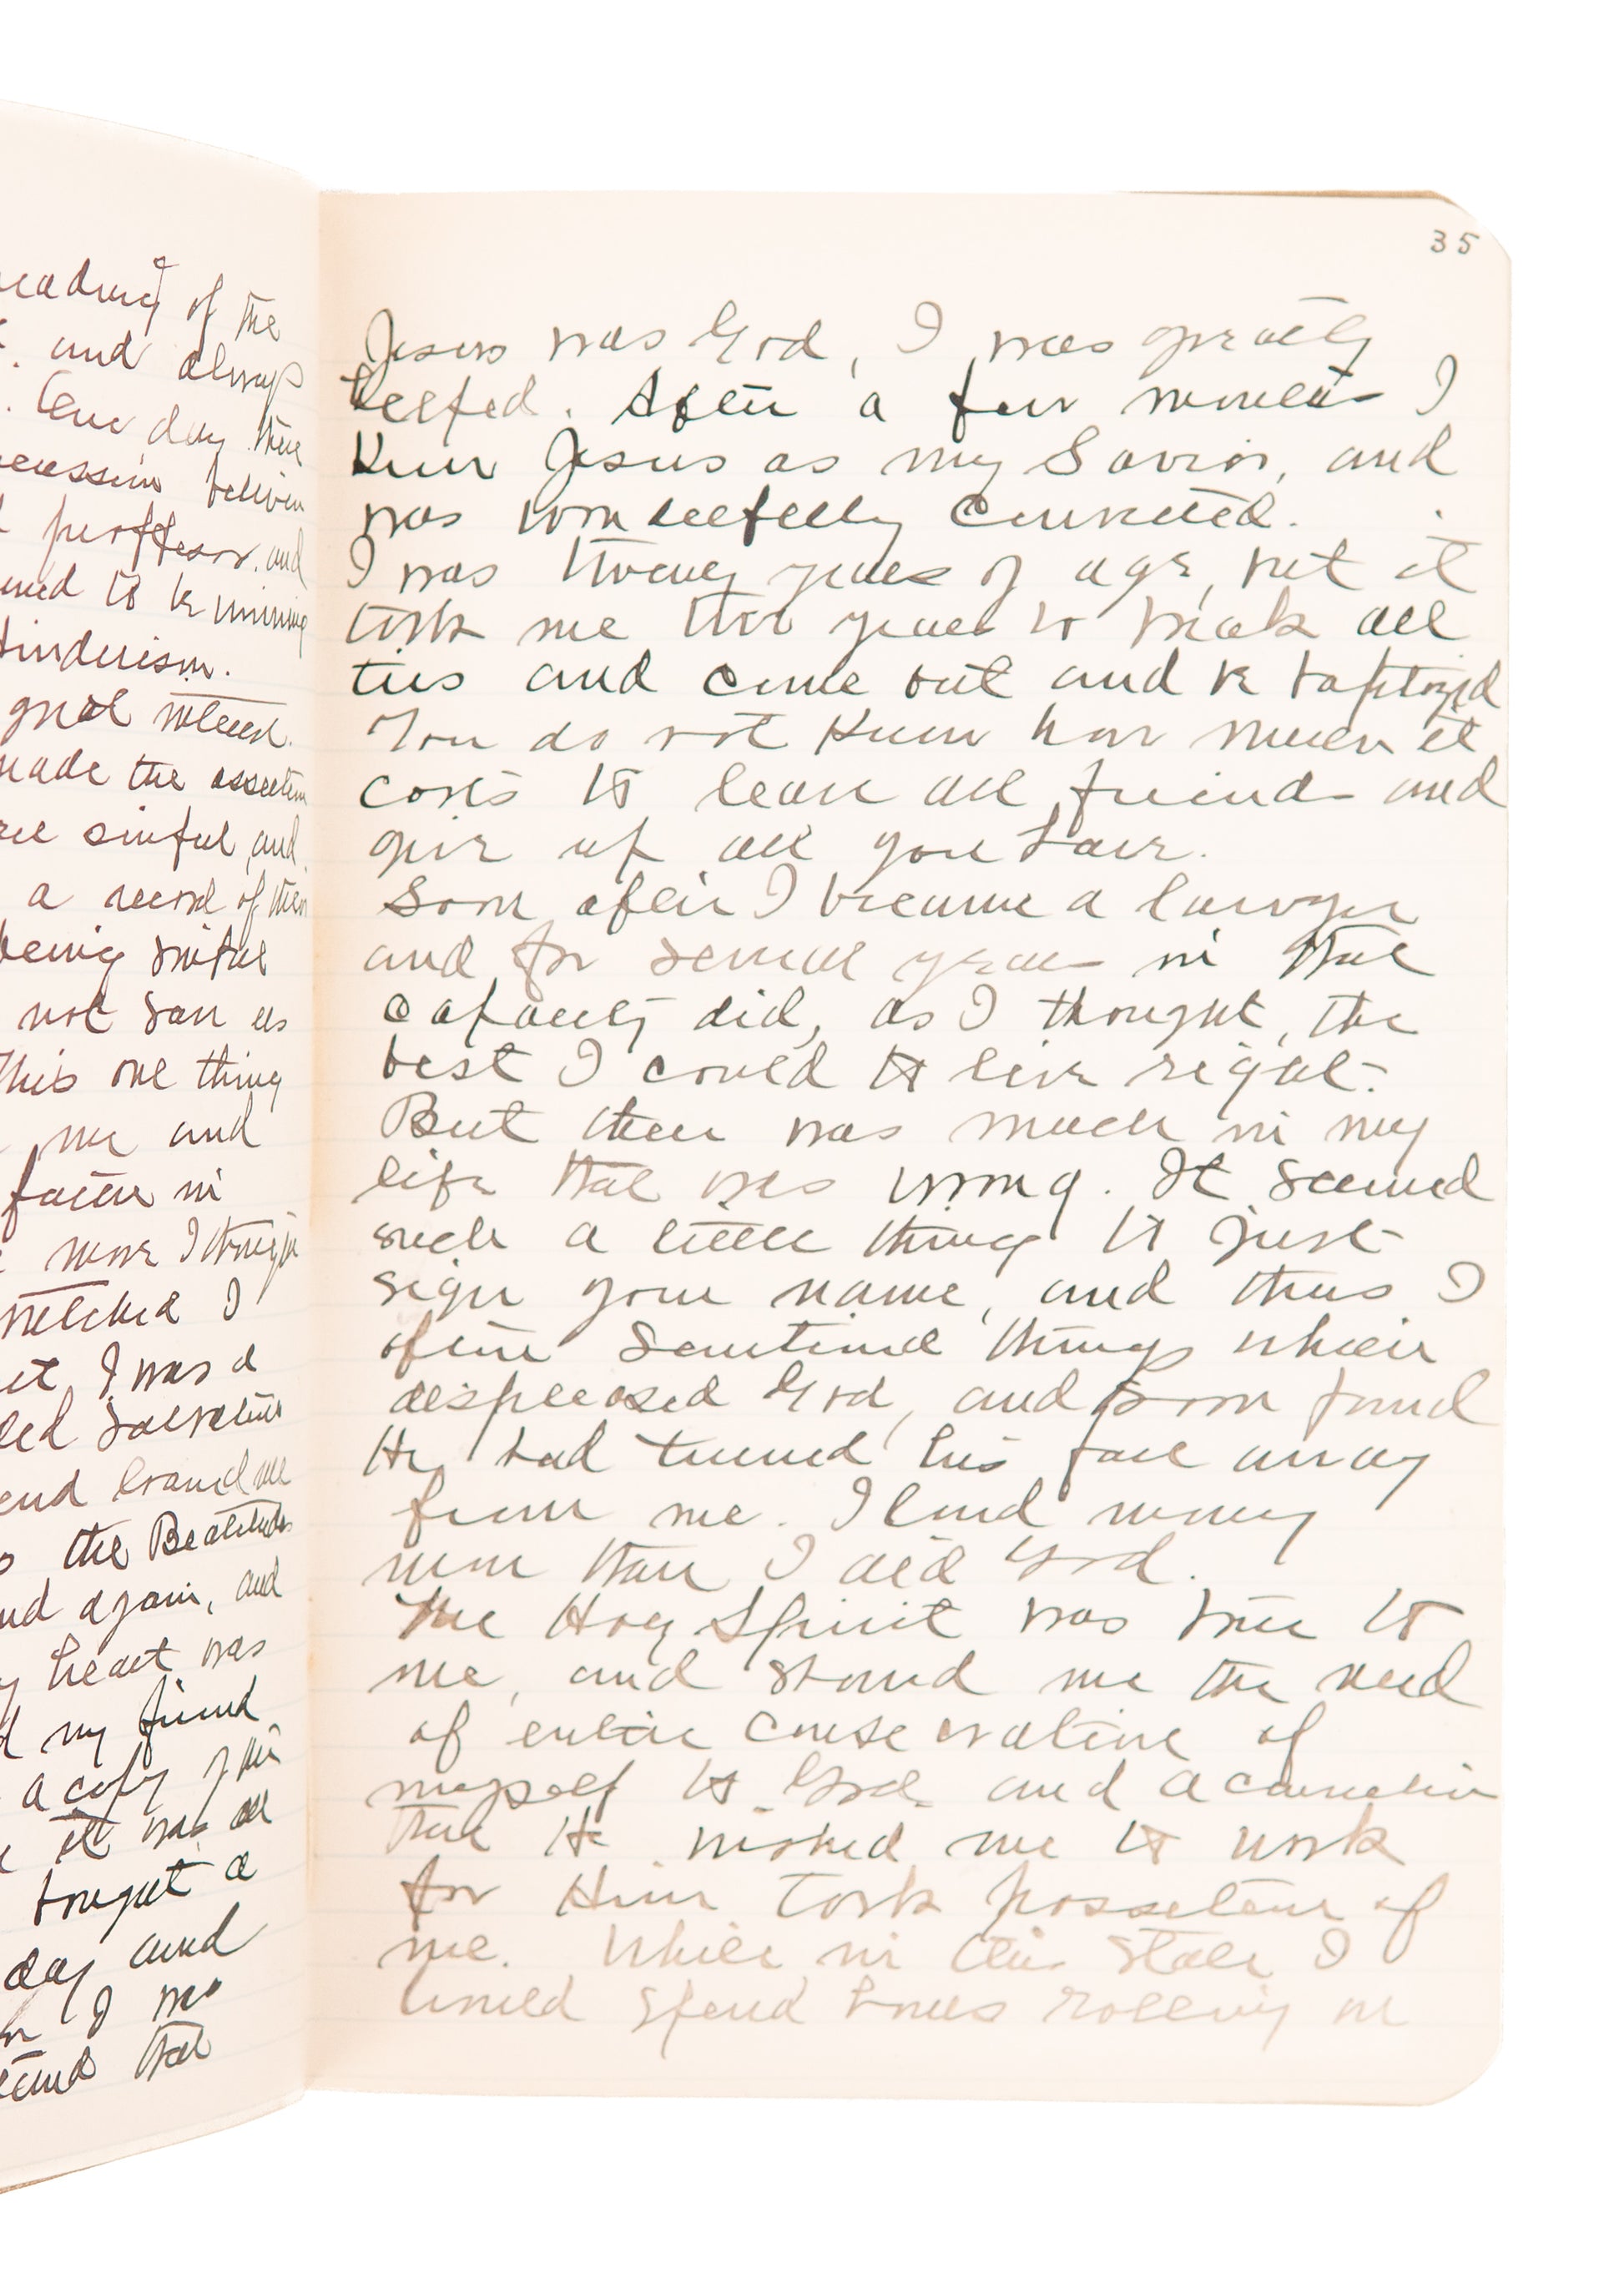 reading of the
and always
One day there
procession believin
professor and
to be winning
Hinduism.
great interest.
made the assertion
sinful, and
a record of their
being sinful
not save us
This one thing
me and
factor in
more I thought
wretched I
it, I was a
led Salvation
end loaned me
the Beatitudes
and again, and
heart was
my friend
a copy of this
it was all
bought a
day and
I was
that
35
Jesus was God, I was greatly
helped. After a few months I
knew Jesus as my Savior, and
was wonderfully converted.
I was twenty years of age, but it
took me two years to break all
ties and come out and be baptized
You do not know how much it
costs to leave all friends and
give up all you have.
Soon after I became a lawyer
and for several years in that
capacity did, as I thought, the
best I could to live right.
But there was much in my
life that was wrong. It seemed
such a little thing to just
sign your name, and thus I
often sanctioned things which
displeased God, and soon found
He had turned his face away
from me. I loved money
more than I did God.
The Holy Spirit was true to
me, and showed me the need
of entire consecration of
myself to God and a conviction
that He wished me to work
for Him took possession of
me. While in this state I
would spend hours rolling on